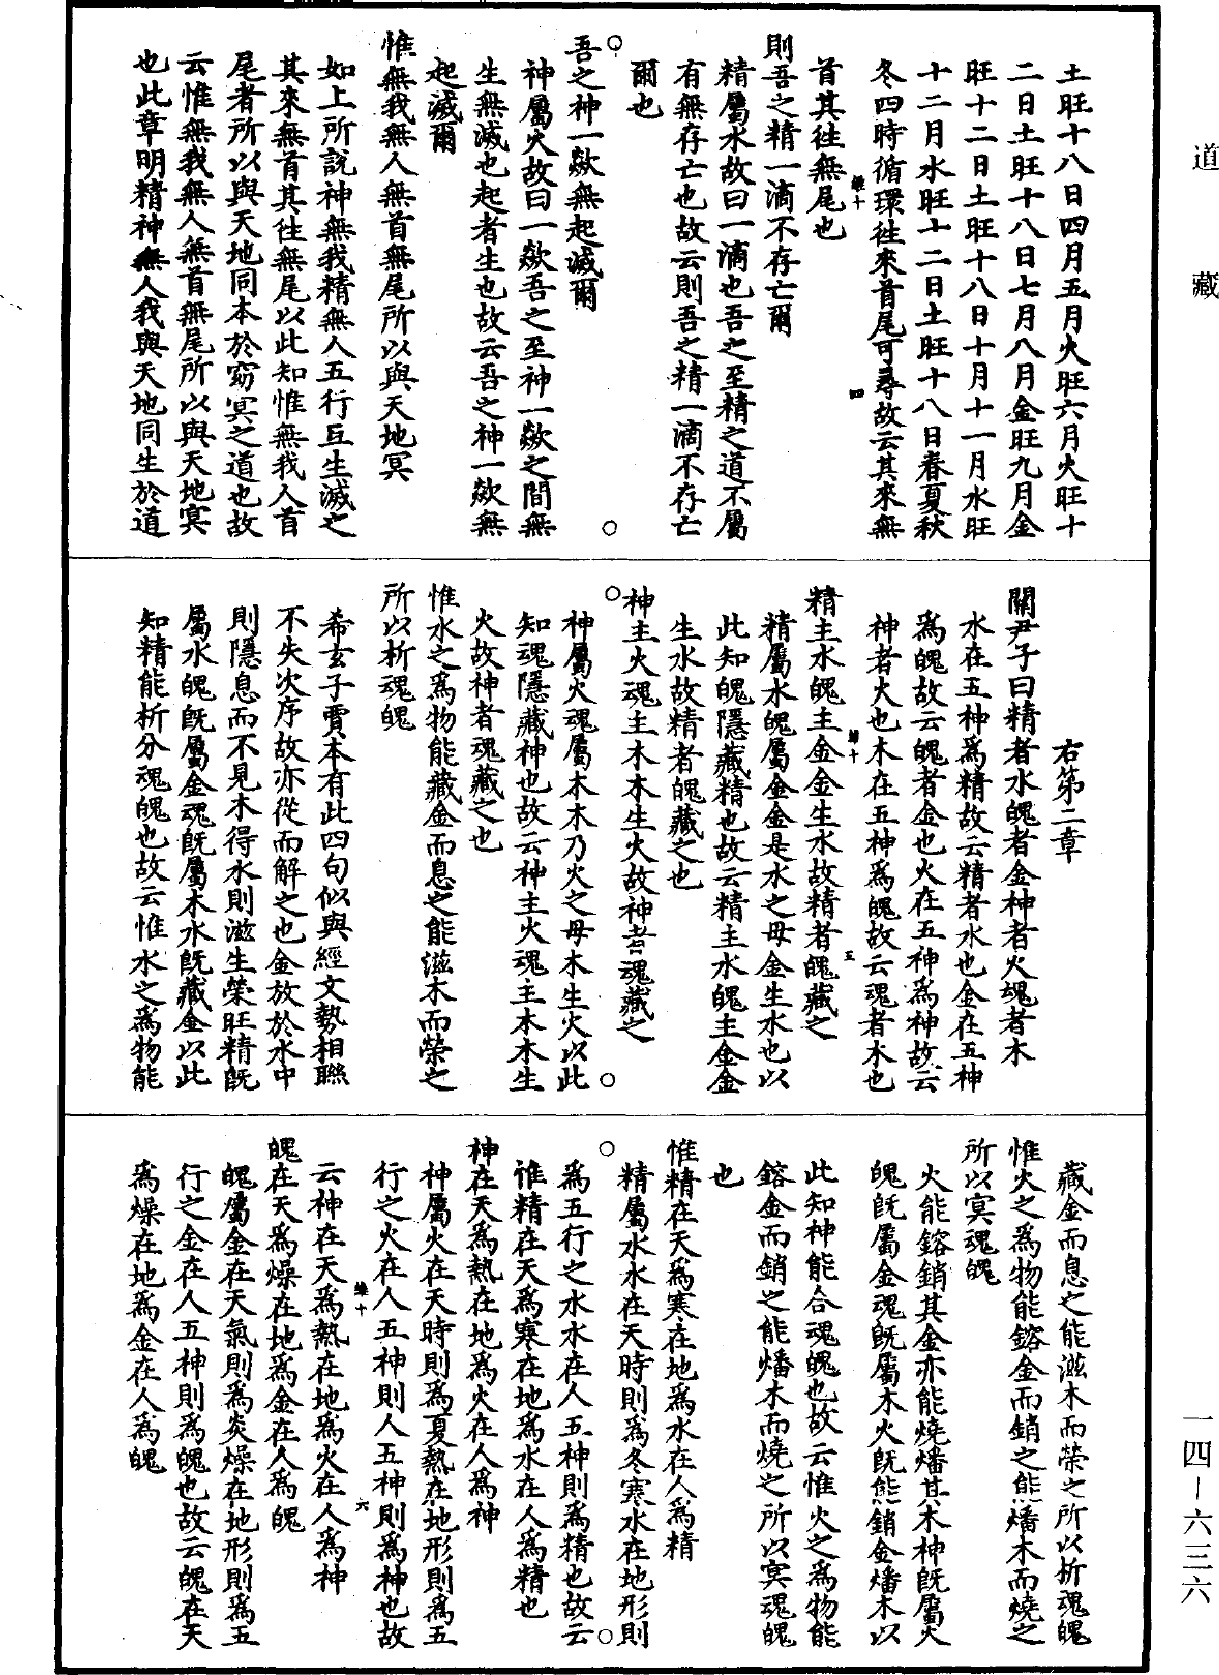 道藏
土旺十八日四月五月火旺六月火旺十
二日土旺十八日七月八月金旺九月金
旺十二日土旺十八日十月十一月水旺
十二月水旺十二日土旺十八日春夏秋
冬四時循環徃來首尾可尋故云其來無
首其徃無尾也
則吾之精一滴不存亡爾
精屬水故曰一滴也吾之至精之道不屬
有無存亡也故云則吾之精一滴不存亡
爾也
吾之神一歘無起滅爾
神屬火故曰一歘吾之至神一歘之間無
生無滅也起者生也故云吾之神一歘無
起滅爾
惟無我無人無首無尾所以與天地冥
如上所說神無我精無人五行互生滅之
其來無首其徃無尾以此知惟無我人首
尾者所以與天地同本於窈冥之道也故
云惟無我無人無首無尾所以與天地冥
也此章明精神無人我與天地同生於道
右第二章
關尹子曰精者水魄者金神者火魂者木
水在五神爲精故云精者水也金在五神
爲魄故云魄者金也火在五神爲神故云
神者火也木在五神爲魄故云魂者木也
精主水魄主金金生水故精者魄藏之
精屬水魄屬金金是水之母金生水也以
此知魄隱藏精也故云精主水魄主金金
生水故精者魄藏之也
神主火魂主木木生火故神者魂藏之
神屬火魂屬木木乃火之母木生火以此
知魂隱藏神也故云神主火魂主木木生
火故神者魂藏之也
惟水之爲物能藏金而息之能滋木而榮之
所以析魂魄
希玄子賈本有此四句似與經文勢相聯
不失次序故亦從而解之也金放於水中
則隱息而不見木得水則滋生榮旺精旣
屬水魄旣屬金魂旣屬木水旣藏金以此
知精能析分魂魄也故云惟水之爲物能
藏金而息之能滋木而榮之所以析魂魄
惟火之爲物能鎔金而銷之能燔木而燒之
所以冥魂魄
火能鎔銷其金亦能燒燔其木神旣屬火
魄旣屬金魂旣屬木火旣能銷金燔木以
此知神能合魂魄也故云惟火之爲物能
鎔金而銷之能燔木而燒之所以冥魂魄
也
惟精在天爲寒在地爲水在人爲精
精屬水水在天時則爲冬寒水在地形則
爲五行之水水在人五神則爲精也故云
惟精在天爲寒在地爲水在人爲精也
神在天爲熱在地爲火在人爲神
神屬火在天時則爲夏熱在地形則爲五
行之火在人五神則人五神則爲神也故
云神在天爲熱在地爲火在人爲神
魄在天爲燥在地爲金在人爲魄
魄屬金在天氣則爲炎燥在地形則爲五
行之金在人五神則爲魄也故云魄在天
爲燥在地爲金在人爲魄
一四－六三六